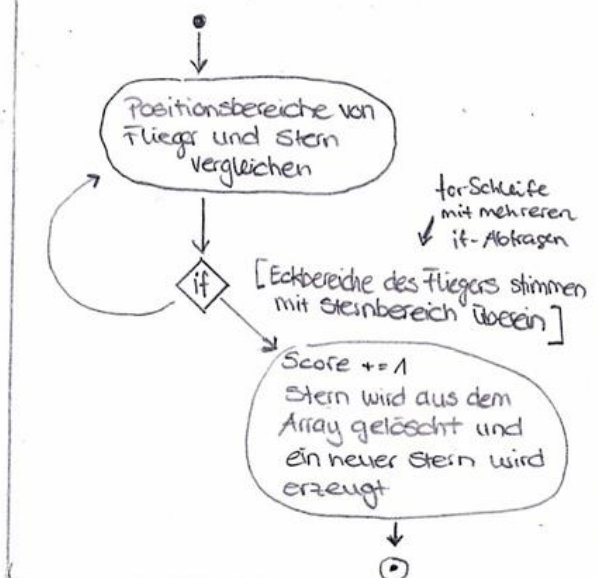 Positionsbereiche von
Flieger und Stern
vergleichen
for-Schleife
mit mehreren
if-Abfragen
if
[Eckbereiche des Fliegers stimmen
mit Sternbereich überein]
Score += 1
Stern wird aus dem
Array gelöscht und
ein neuer Stern wird
erzeugt